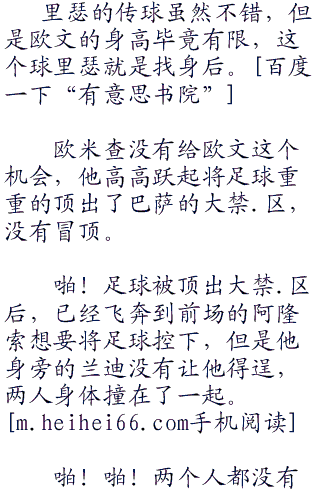 里瑟的传球虽然不错，但
是欧文的身高毕竟有限，这
个球里瑟就是找身后。[百度
一下“有意思书院”]
欧米查没有给欧文这个
机会，他高高跃起将足球重
重的顶出了巴萨的大禁.区，
没有冒顶。
啪！足球被顶出大禁.区
后，已经飞奔到前场的阿隆
索想要将足球控下，但是他
身旁的兰迪没有让他得逞，
两人身体撞在了一起。
[m.heihei66.com手机阅读]
啪！啪！两个人都没有